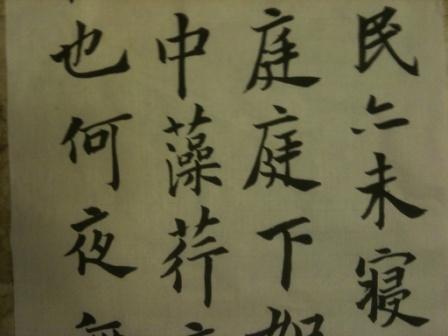 民亦未寢
庭庭下如
中藻荇
也何夜無